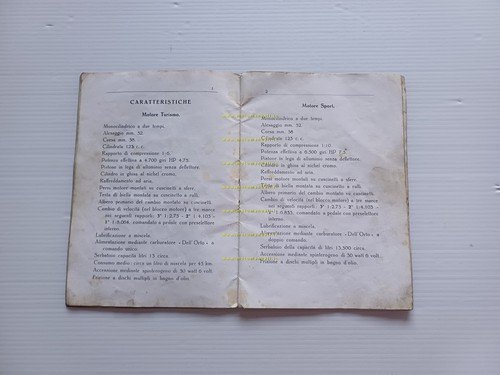 1
CARATTERISTICHE
Motore Turismo.
Monocilindrico a due tempi.
Alesaggio mm. 52.
Corsa mm. 58
Cilindrata 123 c. c.
Rapporto di compressione 1:6.
Potenza effettiva a 4.700 giri HP
Pistone in lega di alluminio senza deflettore.
Cilindro in ghisa al nichel cromo.
Raffreddamento ad aria.
Perni motore montati su cuscinetti a sfere.
Testa di biella montata su cuscinetto a rulli.
Albero primario del cambio su cuscinetti a sfere.
Cambio di velocità (nel blocco motore) a tre marce
nei seguenti rapporti: 3°
comandato a pedale con preselettore
interno.
Lubrificazione a miscela.
Alimentazione mediante carburatore - Dell'Orto - a
comando unico.
Serbatoio capacità litri 13 circa.
Consumo medio: circa un litro di miscela per 45 km.
Accensione mediante spinterogeno di 30 watt 6 volt.
Frizione a dischi multipli in bagno d'olio.
2
Motore Sport.
Monocilindrico a due tempi.
Alesaggio mm. 52.
Corsa mm. 58
Cilindrata 123 c. c.
Rapporto di compressione
Potenza effettiva a 6.300 giri HP
Pistone in lega di alluminio senza deflettore.
Cilindro in ghisa al nichel cromo.
Raffreddamento ad aria.
Perni motore montati su cuscinetti a sfere.
Testa di biella montata su cuscinetto a rulli.
Albero primario del cambio su cuscinetti a sfere.
Cambio di velocità (nel blocco motore) a tre marce
nei seguenti rapporti: 3°
comandato a pedale con preselettore
interno.
Lubrificazione a miscela.
Alimentazione mediante carburatore - Dell'Orto - a
doppio comando.
Serbatoio capacità di litri 13,500 circa.
Accensione mediante spinterogeno di 30 watt 6 volt.
Frizione a dischi multipli in bagno d'olio.